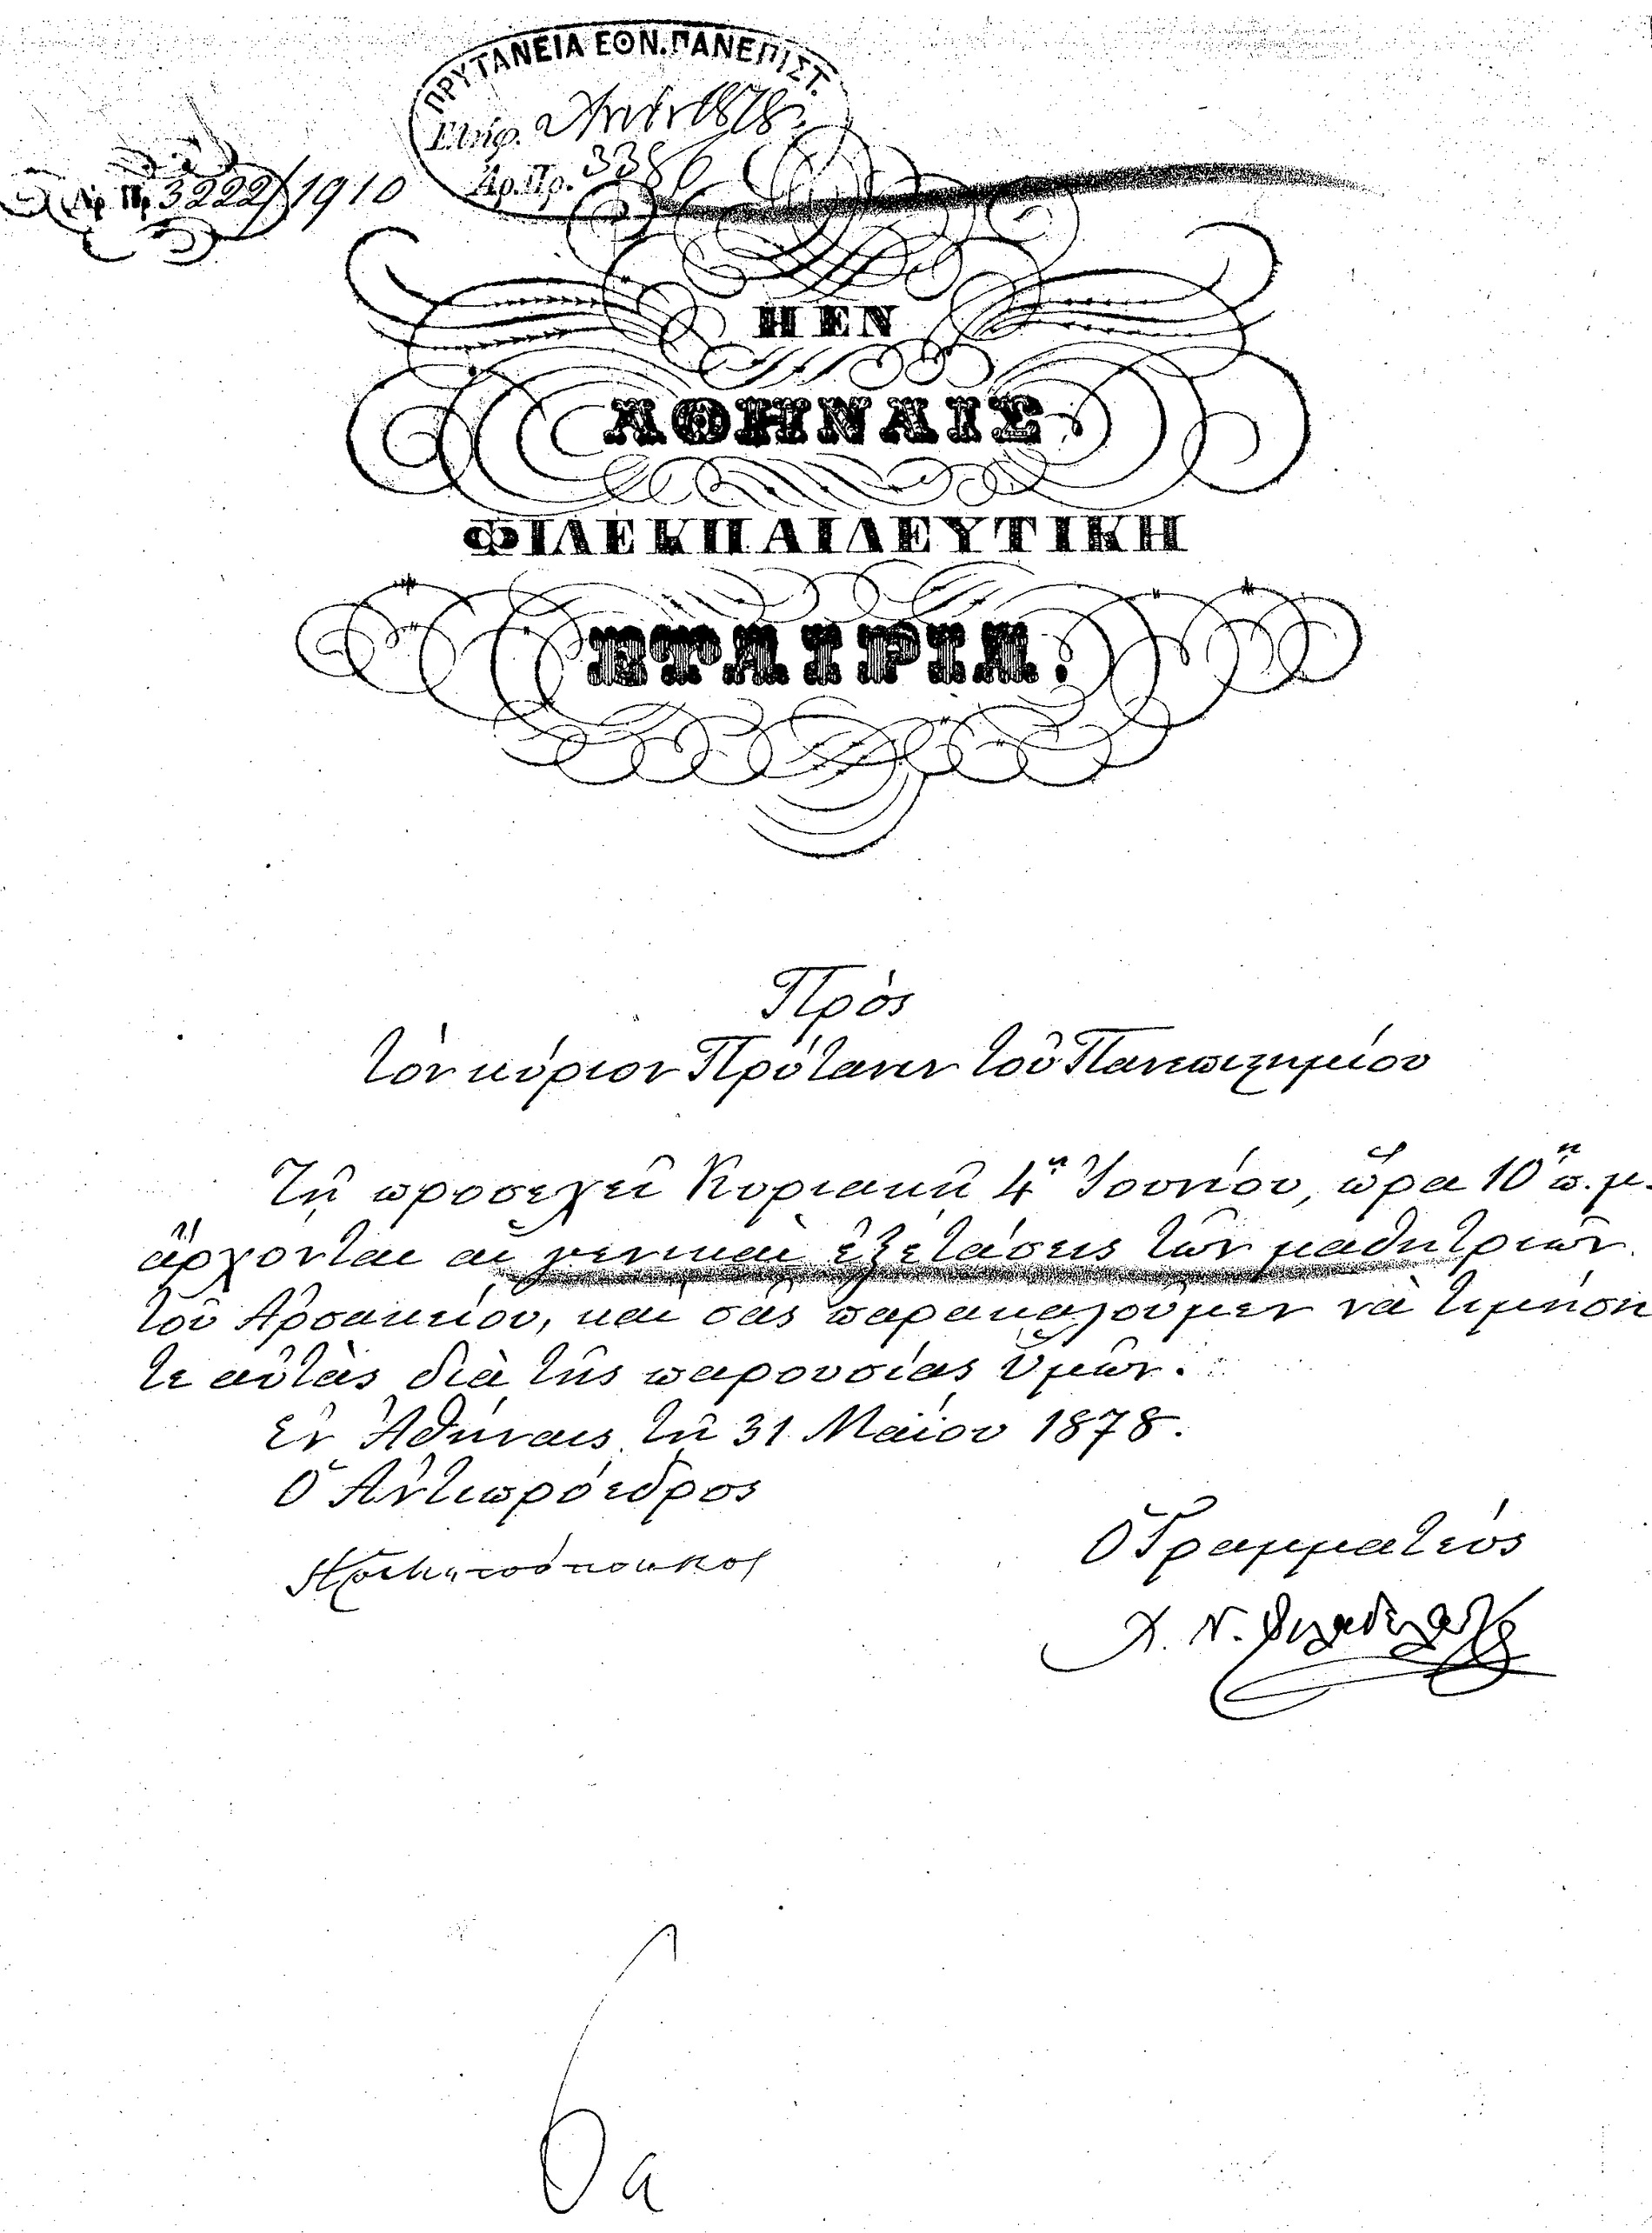 ΠΡΥΤΑΝΕΙΑ ΕΘΝ. ΠΑΝΕΠΙΣΤ.
Ἐλήφ. 1878
Ἀρ.Πρ. 3386
Ἀρ Πρ 3222/1910
Η ΕΝ
ΑΘΗΝΑΙΣ
ΦΙΛΕΚΠΑΙΔΕΥΤΙΚΗ
ΕΤΑΙΡΙΑ.
Πρὸς
τὸν κύριον Πρύτανιν τοῦ Πανεπιστημίου
Τῇ προσεχεῖ Κυριακῇ 4ῃ Ἰουνίου, ὥρᾳ 10ῃ π.μ.
ἄρχονται αἱ γενικαὶ ἐξετάσεις τῶν μαθητριῶν
τοῦ Ἀρσακείου, καὶ σᾶς παρακαλοῦμεν νὰ τιμήση
τε αὐτὰς διὰ τῆς παρουσίας ὑμῶν.
Ἐν Ἀθήναις τῇ 31 Μαΐου 1878.
Ὁ Ἀντιπρόεδρος
Ὁ Γραμματεύς
Χ. Ν. Φιλαδελφεύς
6α